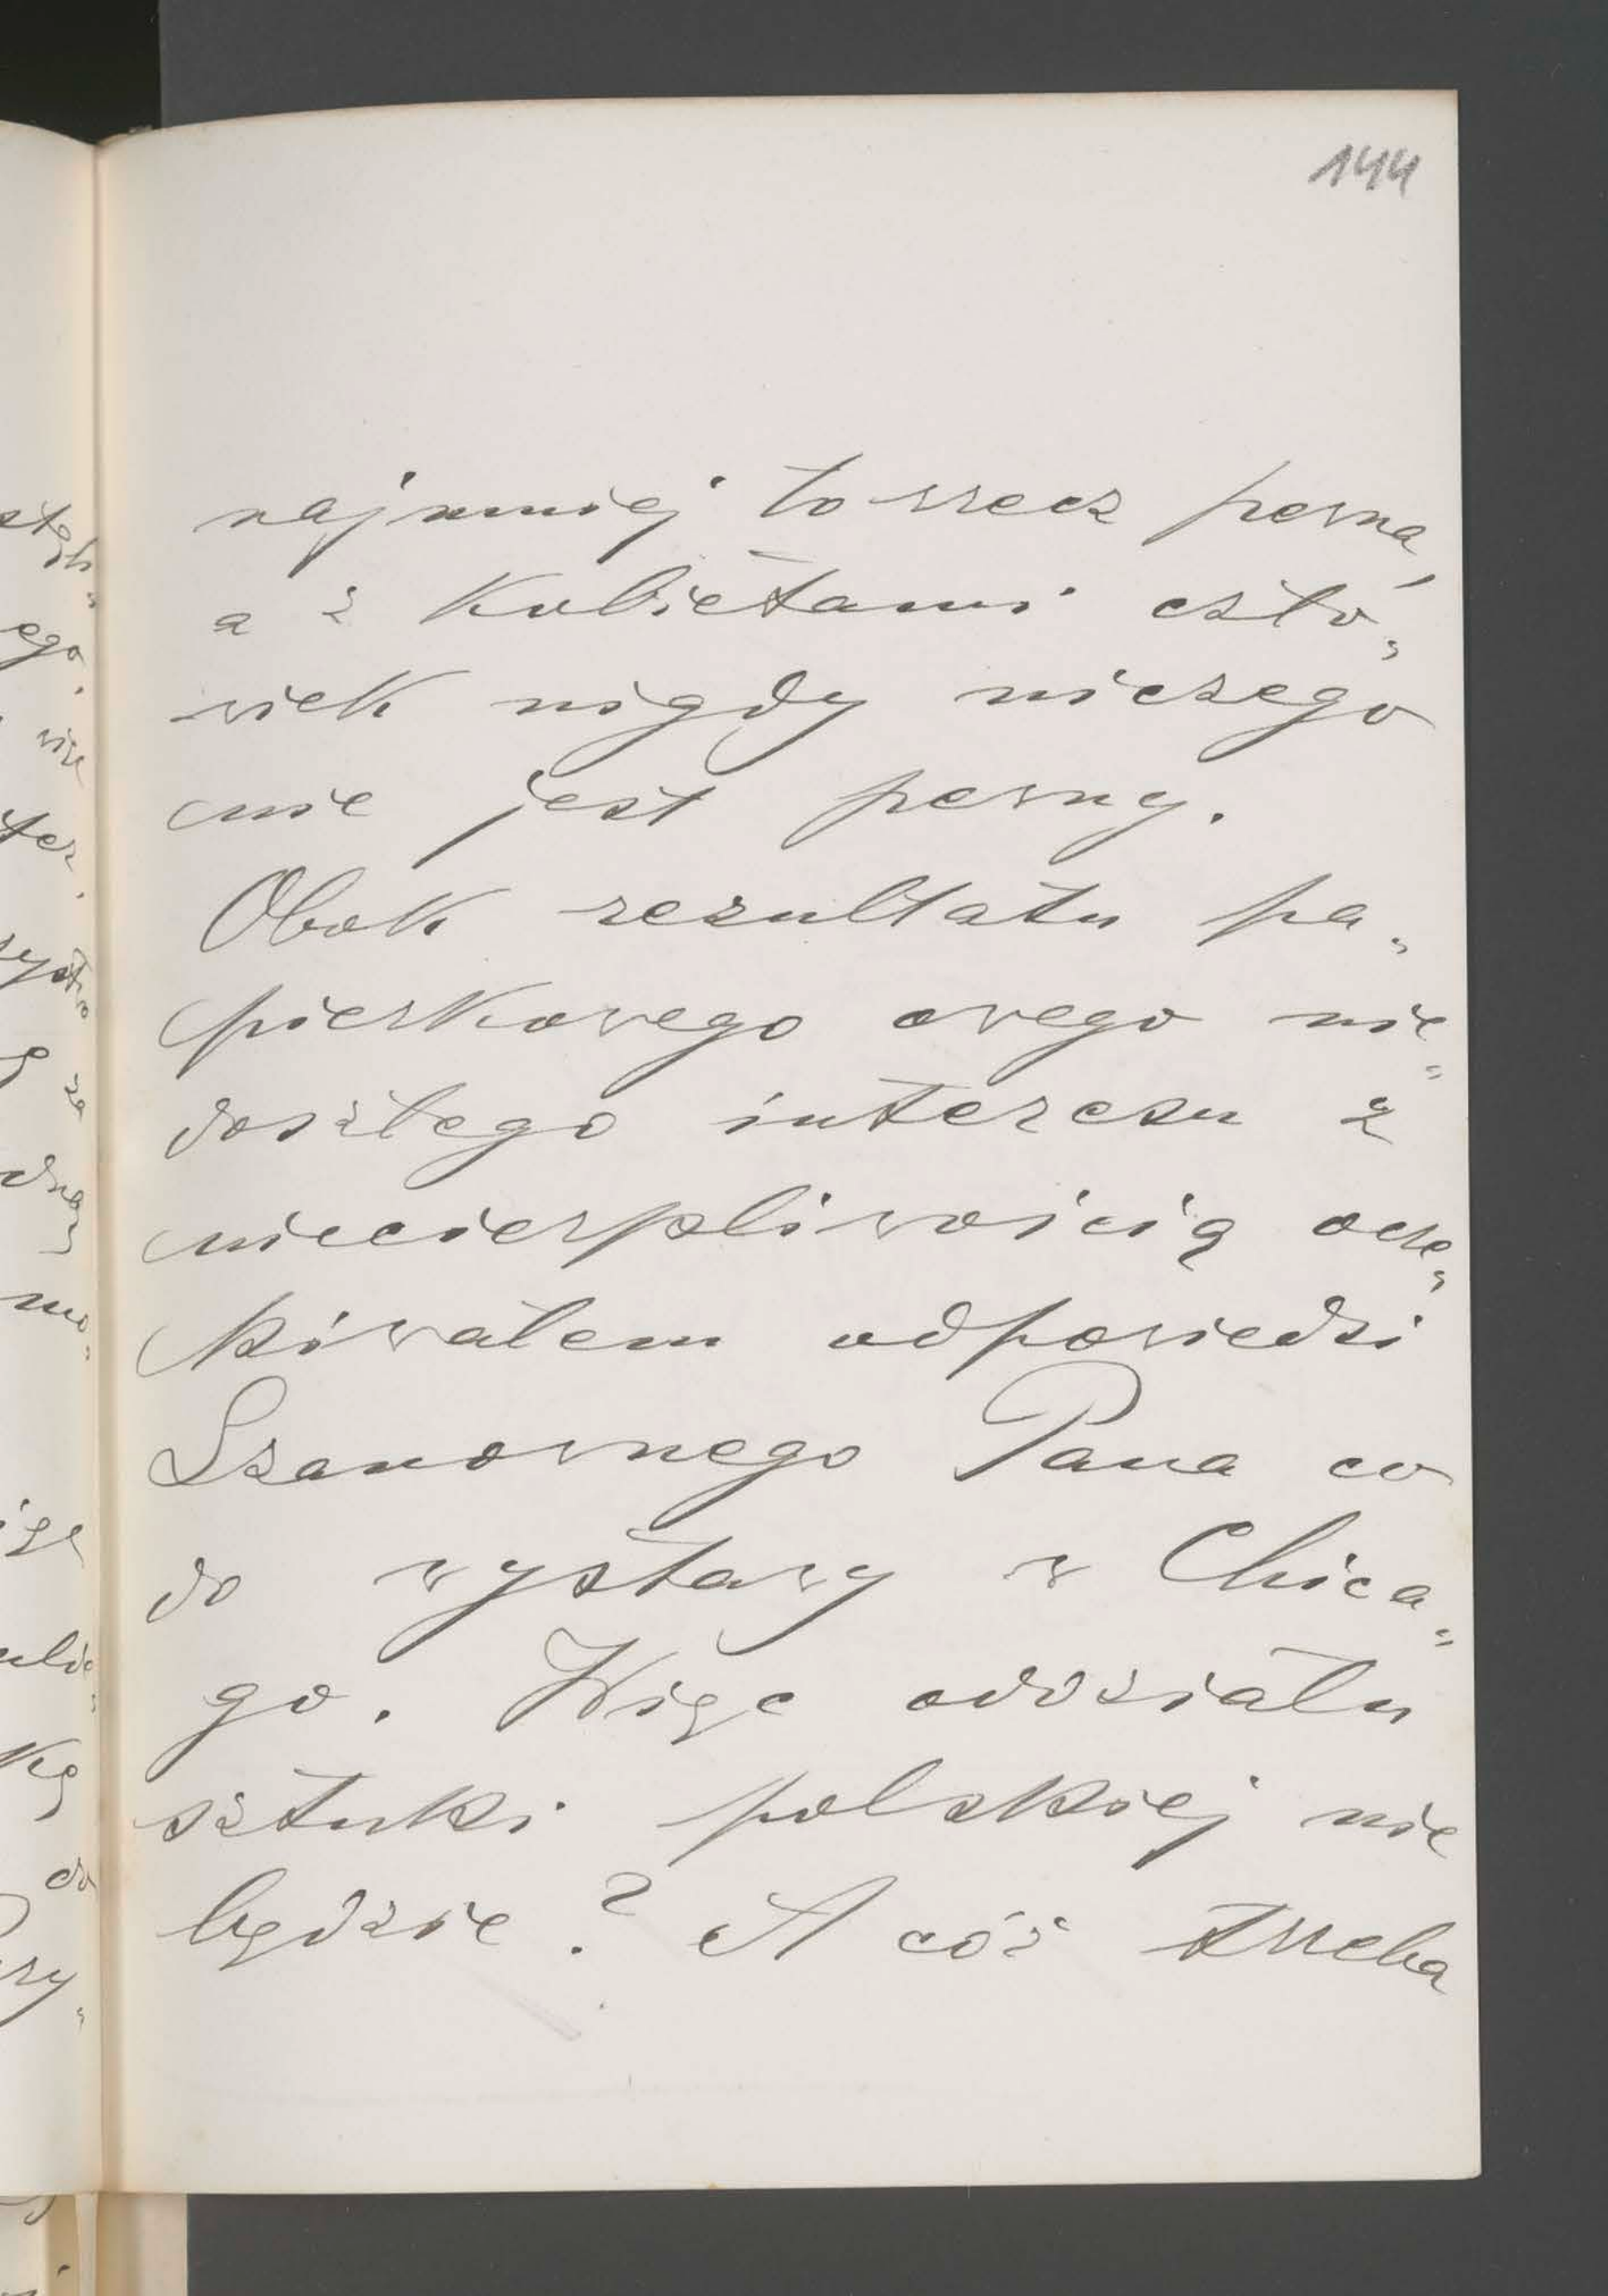 144
najmniej to rzecz pewna,
a z kobietami czło=
wiek nigdy niczego
nie jest pewny.
Obok rezultatu pa=
pierkowego owego nie=
doszłego interesu z
niecierpliwością ocze=
kiwałem odpowiedzi
Szanownego Pana co
do wystawy w Chica=
go. Więc oddziału
sztuki polskiej nie
będzie? A cóż trzeba